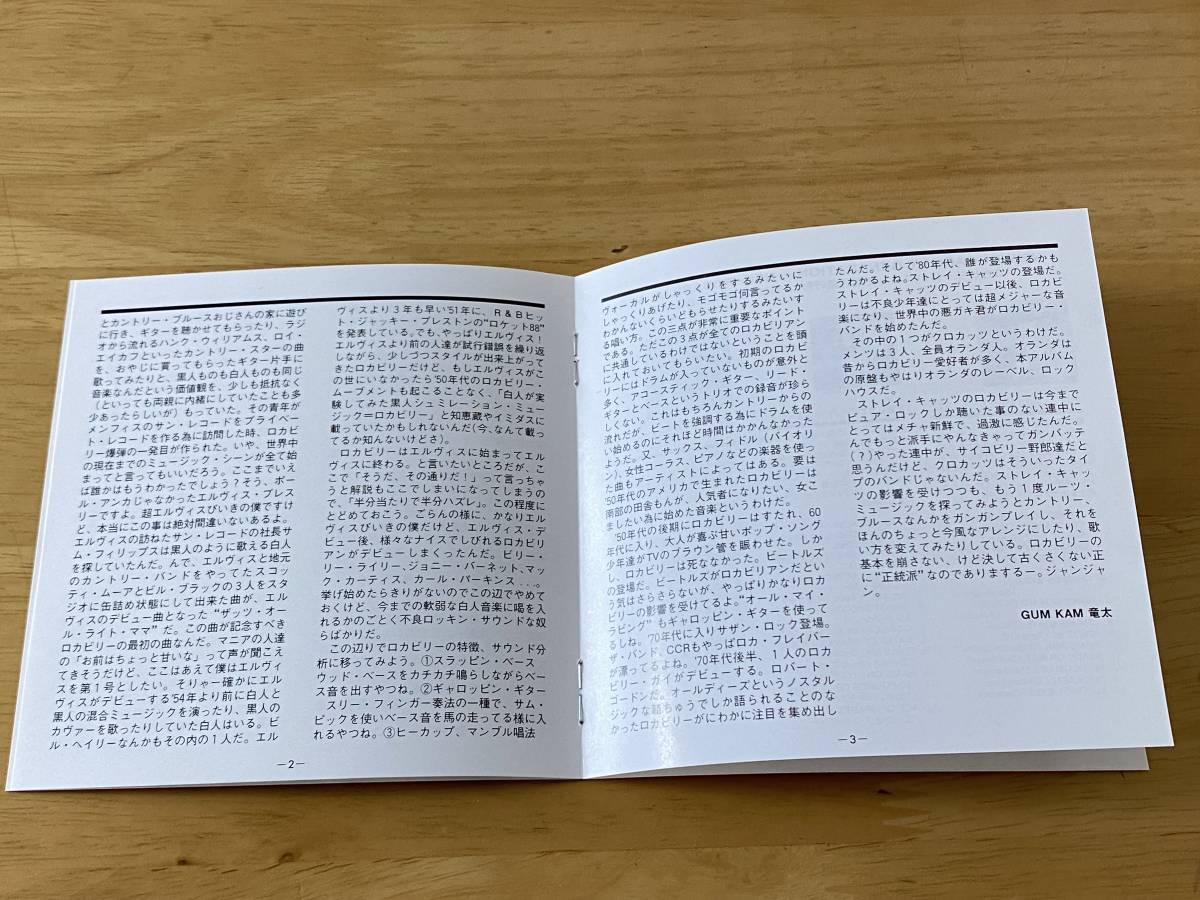 とカントリー・ブルースおじさんの家に遊び
に行き、ギターを聴かせてもらったり、ラジ
オから流れるハンク・ウィリアムス、ロイ・
エイカフといったカントリー・スターの曲
を、おやじに買ってもらったギター片手に
歌ってみたりと、黒人ものも白人ものも同じ
音楽なんだという価値観を、少しも抵抗なく
（といっても両親に内緒にしていたことも多
少あったらしいが）もっていた。その青年が
メンフィスのサン・レコードをプライベー
ト・レコードを作る為に訪問した時、ロカビ
リー爆弾の一発目が作られた。いや、世界中
の現在までのミュージック・シーンが全て始
まってと言ってもいいだろう。ここまでいえ
ば誰かはもうわかったでしょう？そう、ポー
ル・アンカじゃなかったエルヴィス・プレス
リーですよ。超エルヴィスびいきの僕ですけ
ど、本当にこの事は絶対間違いないあるよ。
エルヴィスの訪ねたサン・レコードの社長サ
ム・フィリップスは黒人のように歌える白人
を探していたんだ。んで、エルヴィスと地元
のカントリー・バンドをやってたスコッ
ティ・ムーアとビル・ブラックの3人をスタ
ジオに缶詰め状態にして出来た曲が、エル
ヴィスのデビュー曲となった“ザッツ・オー
ル・ライト・ママ”だ。この曲が記念すべき
ロカビリーの最初の曲なんだ。マニアの人達
の「お前はちょっと甘いな」って声が聞こえ
てきそうだけど、ここはあえて僕はエルヴィ
スを第1号としたい。そりゃー確かにエル
ヴィスがデビューする'54年より前に白人と
黒人の混合ミュージックを演ったり、黒人の
カヴァーを歌ったりしていた白人はいる。ビ
ル・ヘイリーなんかもその内の1人だ。エル
－2－
ヴィスより3年も早い'51年に、R＆Bヒッ
ト・ジャッキー・ブレストンの“ロケット88”
を発表している。でも、やっぱりエルヴィス！
エルヴィスより前の人達が試行錯誤を繰り返
しながら、少しづつスタイルが出来上がって
きたロカビリーだけど、もしエルヴィスがこ
の世にいなかったら'50年代のロカビリー・
ムーブメントも起こることなく、「白人が実
験してみた黒人シュミレーション・ミュー
ジック＝ロカビリー」と知恵蔵やイミダスに
載っていたかもしれないんだ（今、なんて載っ
てるか知んないけどさ）。
　ロカビリーはエルヴィスに始まってエル
ヴィスに終わる。と言いたいところだが、こ
こで「そうだ、その通りだ！」って言っちゃ
うと解説もここでしまいになってしまうの
で、「半分当たりで半分ハズレ」。この程度に
とどめておこう。ごらんの様に、かなりエル
ヴィスびいきの僕だけど、エルヴィス・デ
ビュー後、様々なナイスでしびれるロカビリ
アンがデビューしまくったんだ。ビリー・
リー・ライリー、ジョニー・バーネット、マッ
ク・カーティス、カール・パーキンス...。
挙げ始めたらきりがないのでこの辺でやめて
おくけど、今までの軟弱な白人音楽に喝を入
れるかのごとく不良ロッキン・サウンドな奴
らばかりだ。
　この辺りでロカビリーの特徴、サウンド分
析に移ってみよう。①スラッピン・ベース
ウッド・ベースをカチカチ鳴らしながらベー
ス音を出すやつね。②ギャロッピン・ギター
　スリー・フィンガー奏法の一種で、サム・
ピックを使いベース音を馬の走ってる様に入
れるやつね。③ヒーカップ、マンブル唱法
ヴォーカルがしゃっくりをするみたいに
しゃっくりあげたり、モゴモゴ何言ってるか
わかんないくらいどもらせたりするみたいす
る唱い方。この三点が非常に重要なポイント
である。ただこの3点が全てのロカビリアン
に共通しているわけではないということを頭
に入れておいてもらいたい。初期のロカビ
リーにはドラムが入っていないものが意外と
多く、アコースティック・ギター、リード・
ギターとベースというトリオでの録音が珍ら
しくない。これはもちろんカントリーからの
流れだが、ビートを強調する為にドラムを使
い始めるのにそれほど時間はかかんなかった
ようだ。又、サックス、フィドル（バイオリ
ン）、女性コーラス、ピアノなどの楽器を使っ
た曲もアーティストによってはある。要は
'50年代のアメリカで生まれたロカビリーは
南部の田舎もんが、人気者になりたい、女こ
ましたい為に始めた音楽というわけだ。
　'50年代の後期にロカビリーはすたれ、60
年代に入り、大人が喜ぶ甘いポップ・ソング
少年達がTVのブラウン管を賑わせた。しか
し、ロカビリーは死ななかった。ビートルズ
の登場だ。ビートルズがロカビリアンだとい
う気はさらさらないが、やっぱりかなりロカ
ビリーの影響を受けてるよ。“オール・マイ・
ラビング”もギャロッピン・ギターを使って
るしね。'70年代に入りサザン・ロック登場。
ザ・バンド、CCRもやっぱロカ・フレイバー
が漂ってるよね。'70年代後半、1人のロカ
ビリー・ガイがデビューする。ロバート・
ゴードンだ。オールディーズというノスタル
ジックな語ちゅうでしか語られることのな
かったロカビリーがにわかに注目を集め出し
たんだ。そして'80年代、誰が登場するかも
うわかるよね。ストレイ・キャッツの登場だ。
ストレイ・キャッツのデビュー以後、ロカビ
リーは不良少年達にとっては超メジャーな音
楽になり、世界中の悪ガキ君がロカビリー・
バンドを始めたんだ。
　その中の1つがクロカッツというわけだ。
メンツは3人、全員オランダ人。オランダは
昔からロカビリー愛好者が多く、本アルバム
の原盤もやはりオランダのレーベル、ロック
ハウスだ。
　ストレイ・キャッツのロカビリーは今まで
ピュア・ロックしか聴いた事のない連中に
とってはメチャ新鮮で、過激に感じたんだ。
んでもっと派手にやんなきゃってガンバッテ
（？）やった連中が、サイコビリー野郎達だと
思うんだけど、クロカッツはそういったタイ
プのバンドじゃないんだ。ストレイ・キャッ
ツの影響を受けつつも、もう1度ルーツ・
ミュージックを探ってみようとカントリー、
ブルースなんかをガンガンプレイし、それを
ほんのちょっと今風なアレンジにしたり、歌
い方を変えてみたりしている。ロカビリーの
基本を崩さない、けど決して古くさくない正
に“正統派”なのでありまするー。ジャンジャ
ン。
GUM KAM 竜太
－3－